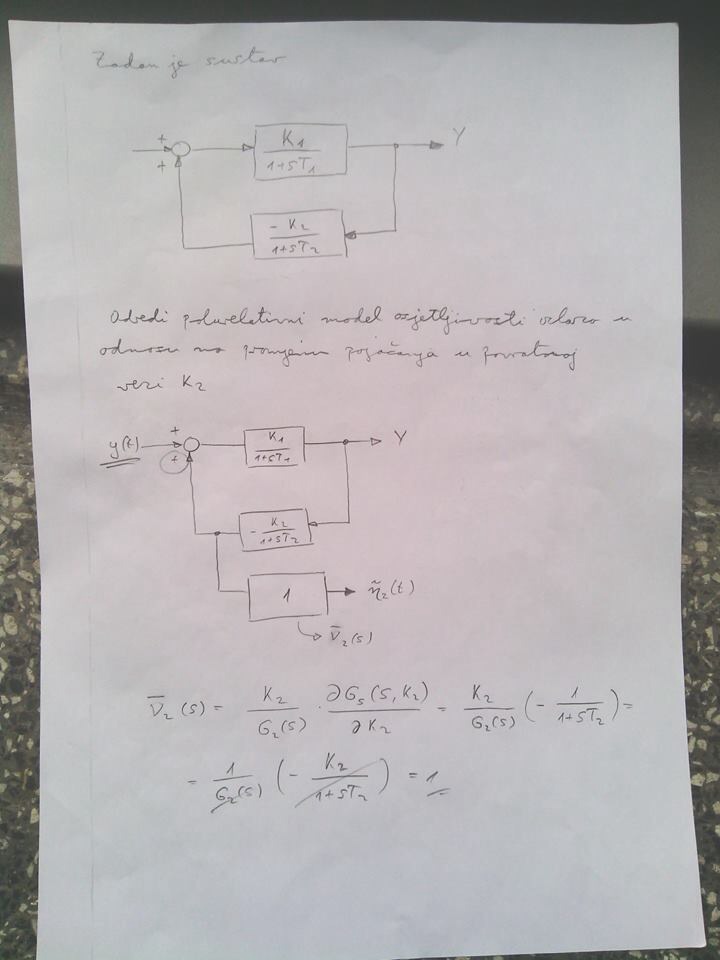 Zadan je sustav
+
K1 / 1+sT1
Y
+
-K2 / 1+sT2
Odredi polurelativni model osjetljivosti izlaza u
odnosu na promjenu pojačanja u povratnoj
vezi K2
y(t)
+
K1 / 1+sT1
Y
+
- K2 / 1+sT2
1
η̃2(t)
ν̄2(s)
ν̄2(s) = K2 / G2(s) · ∂Gs(s, K2) / ∂K2 = K2 / G2(s) (- 1 / 1+sT2) =
= 1 / G2(s) (- K2 / 1+sT2) = 1